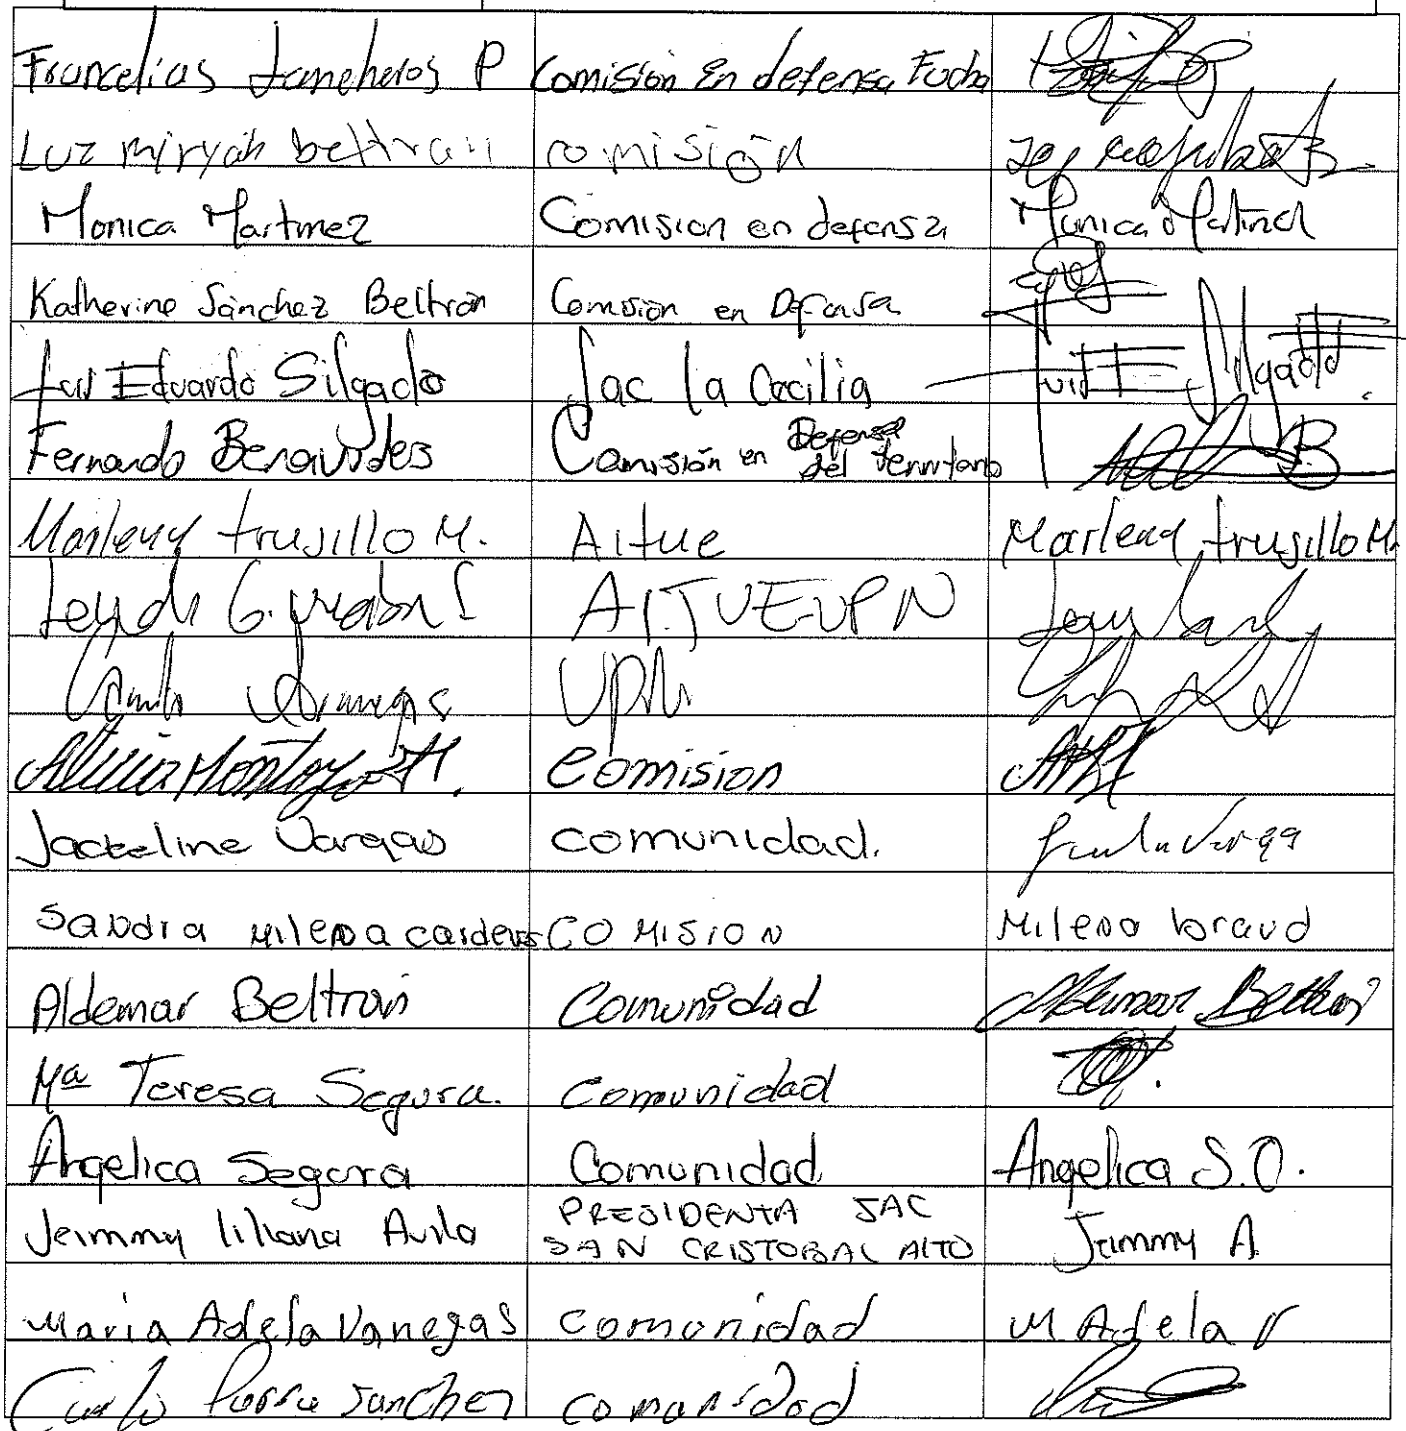 Francelias Lancheros P Comisión En defensa Fucha
Luz miryan beltran comisión
Monica Martinez Comision en defensa Monica Martinez
Katherine Sánchez Beltrán Comisión en Defensa
Luis Eduardo Silgado Jac la Cecilia Luis E Silgado
Fernando Benavides Comisión en Defensa del territorio
Marleny trujillo M. Aitue Marleny trujillo M.
Leydi G. AITUE UPN
Camilo UPN
Alicia Montoya M. Comision
Jackeline Vargas comunidad.
Sandra Milena cardenas COMISION Milena
Aldemar Beltran Comunidad Aldemar Beltran
Mª Teresa Segura. Comunidad
Angelica Segura Comunidad Angelica S.O.
Jeimmy liliana Avila PRESIDENTA JAC SAN CRISTOBAL ALTO Jeimmy A
Maria Adela Vanegas comunidad M Adela V
Parra Sanchez comunidad